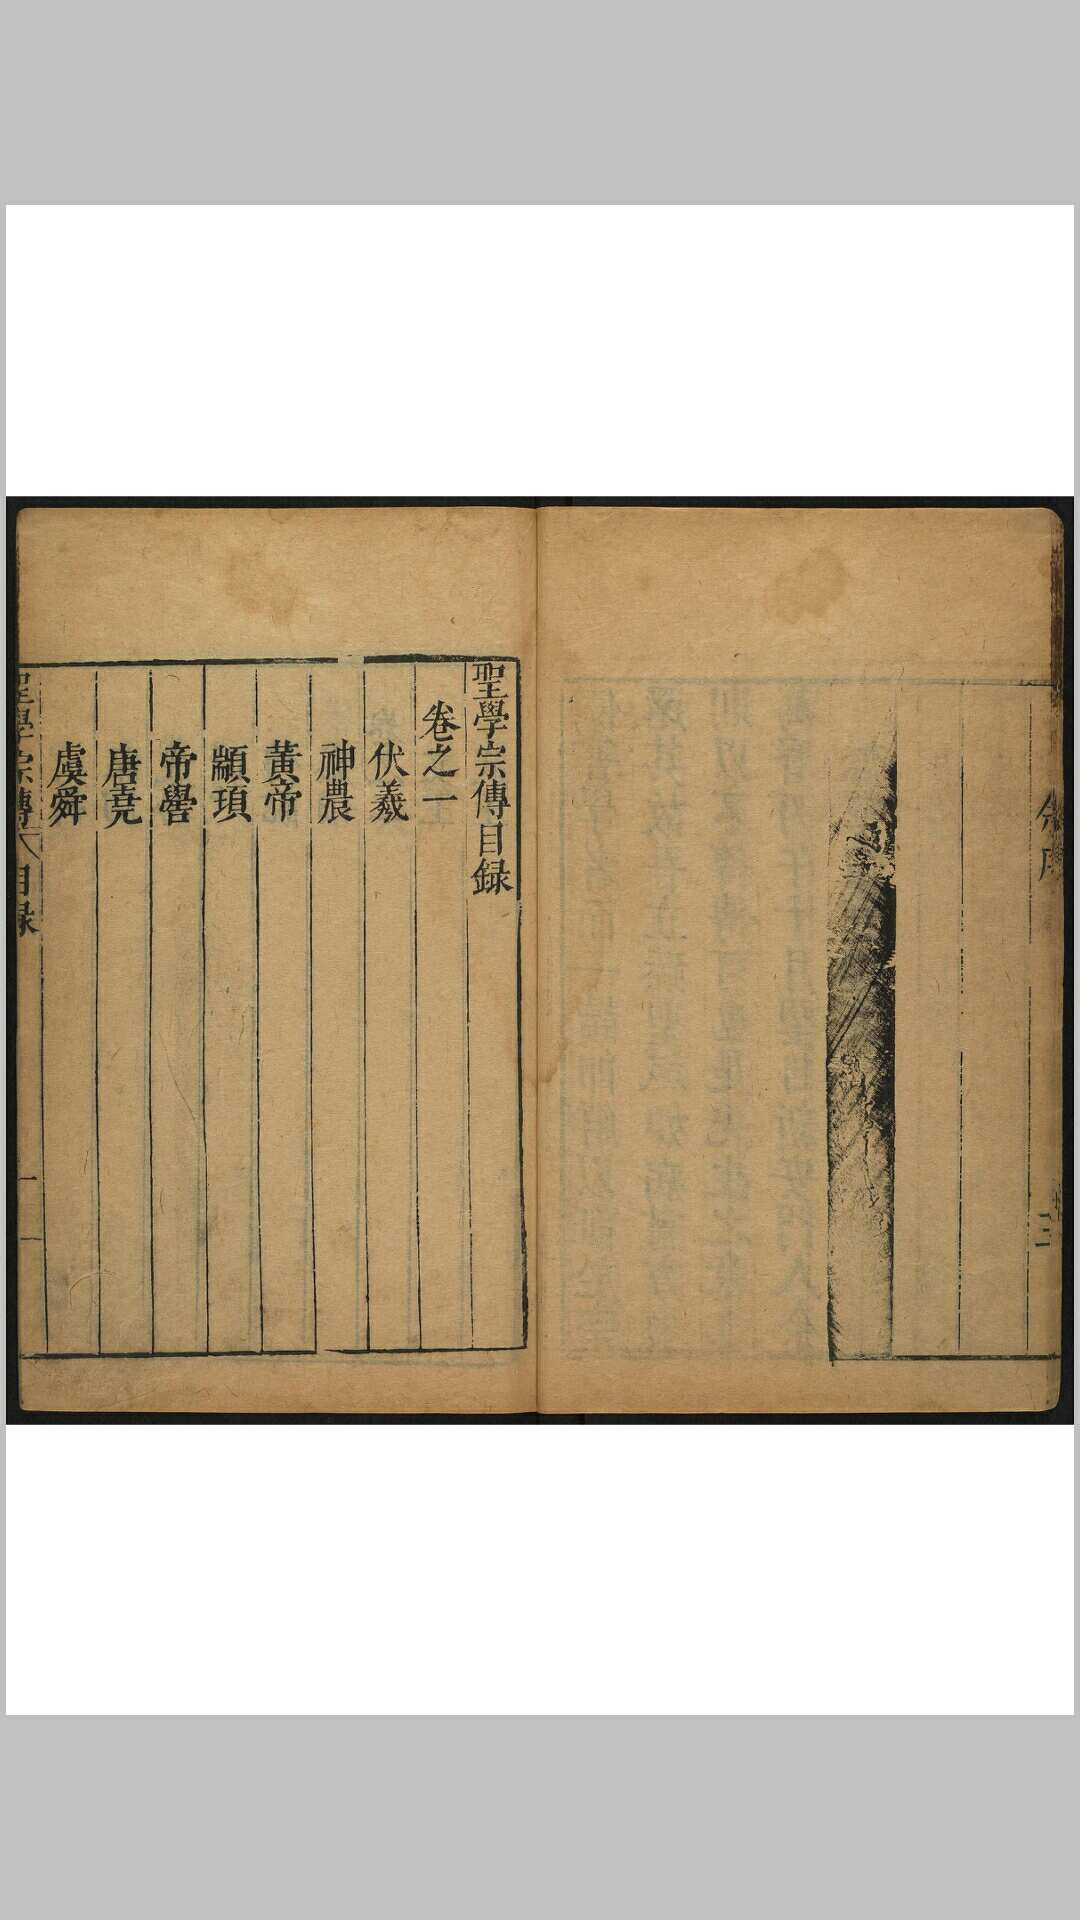 余序
三
聖學宗傳目録
卷之一
伏羲
神農
黃帝
顓頊
帝嚳
唐堯
虞舜
聖學宗傳 目録
一